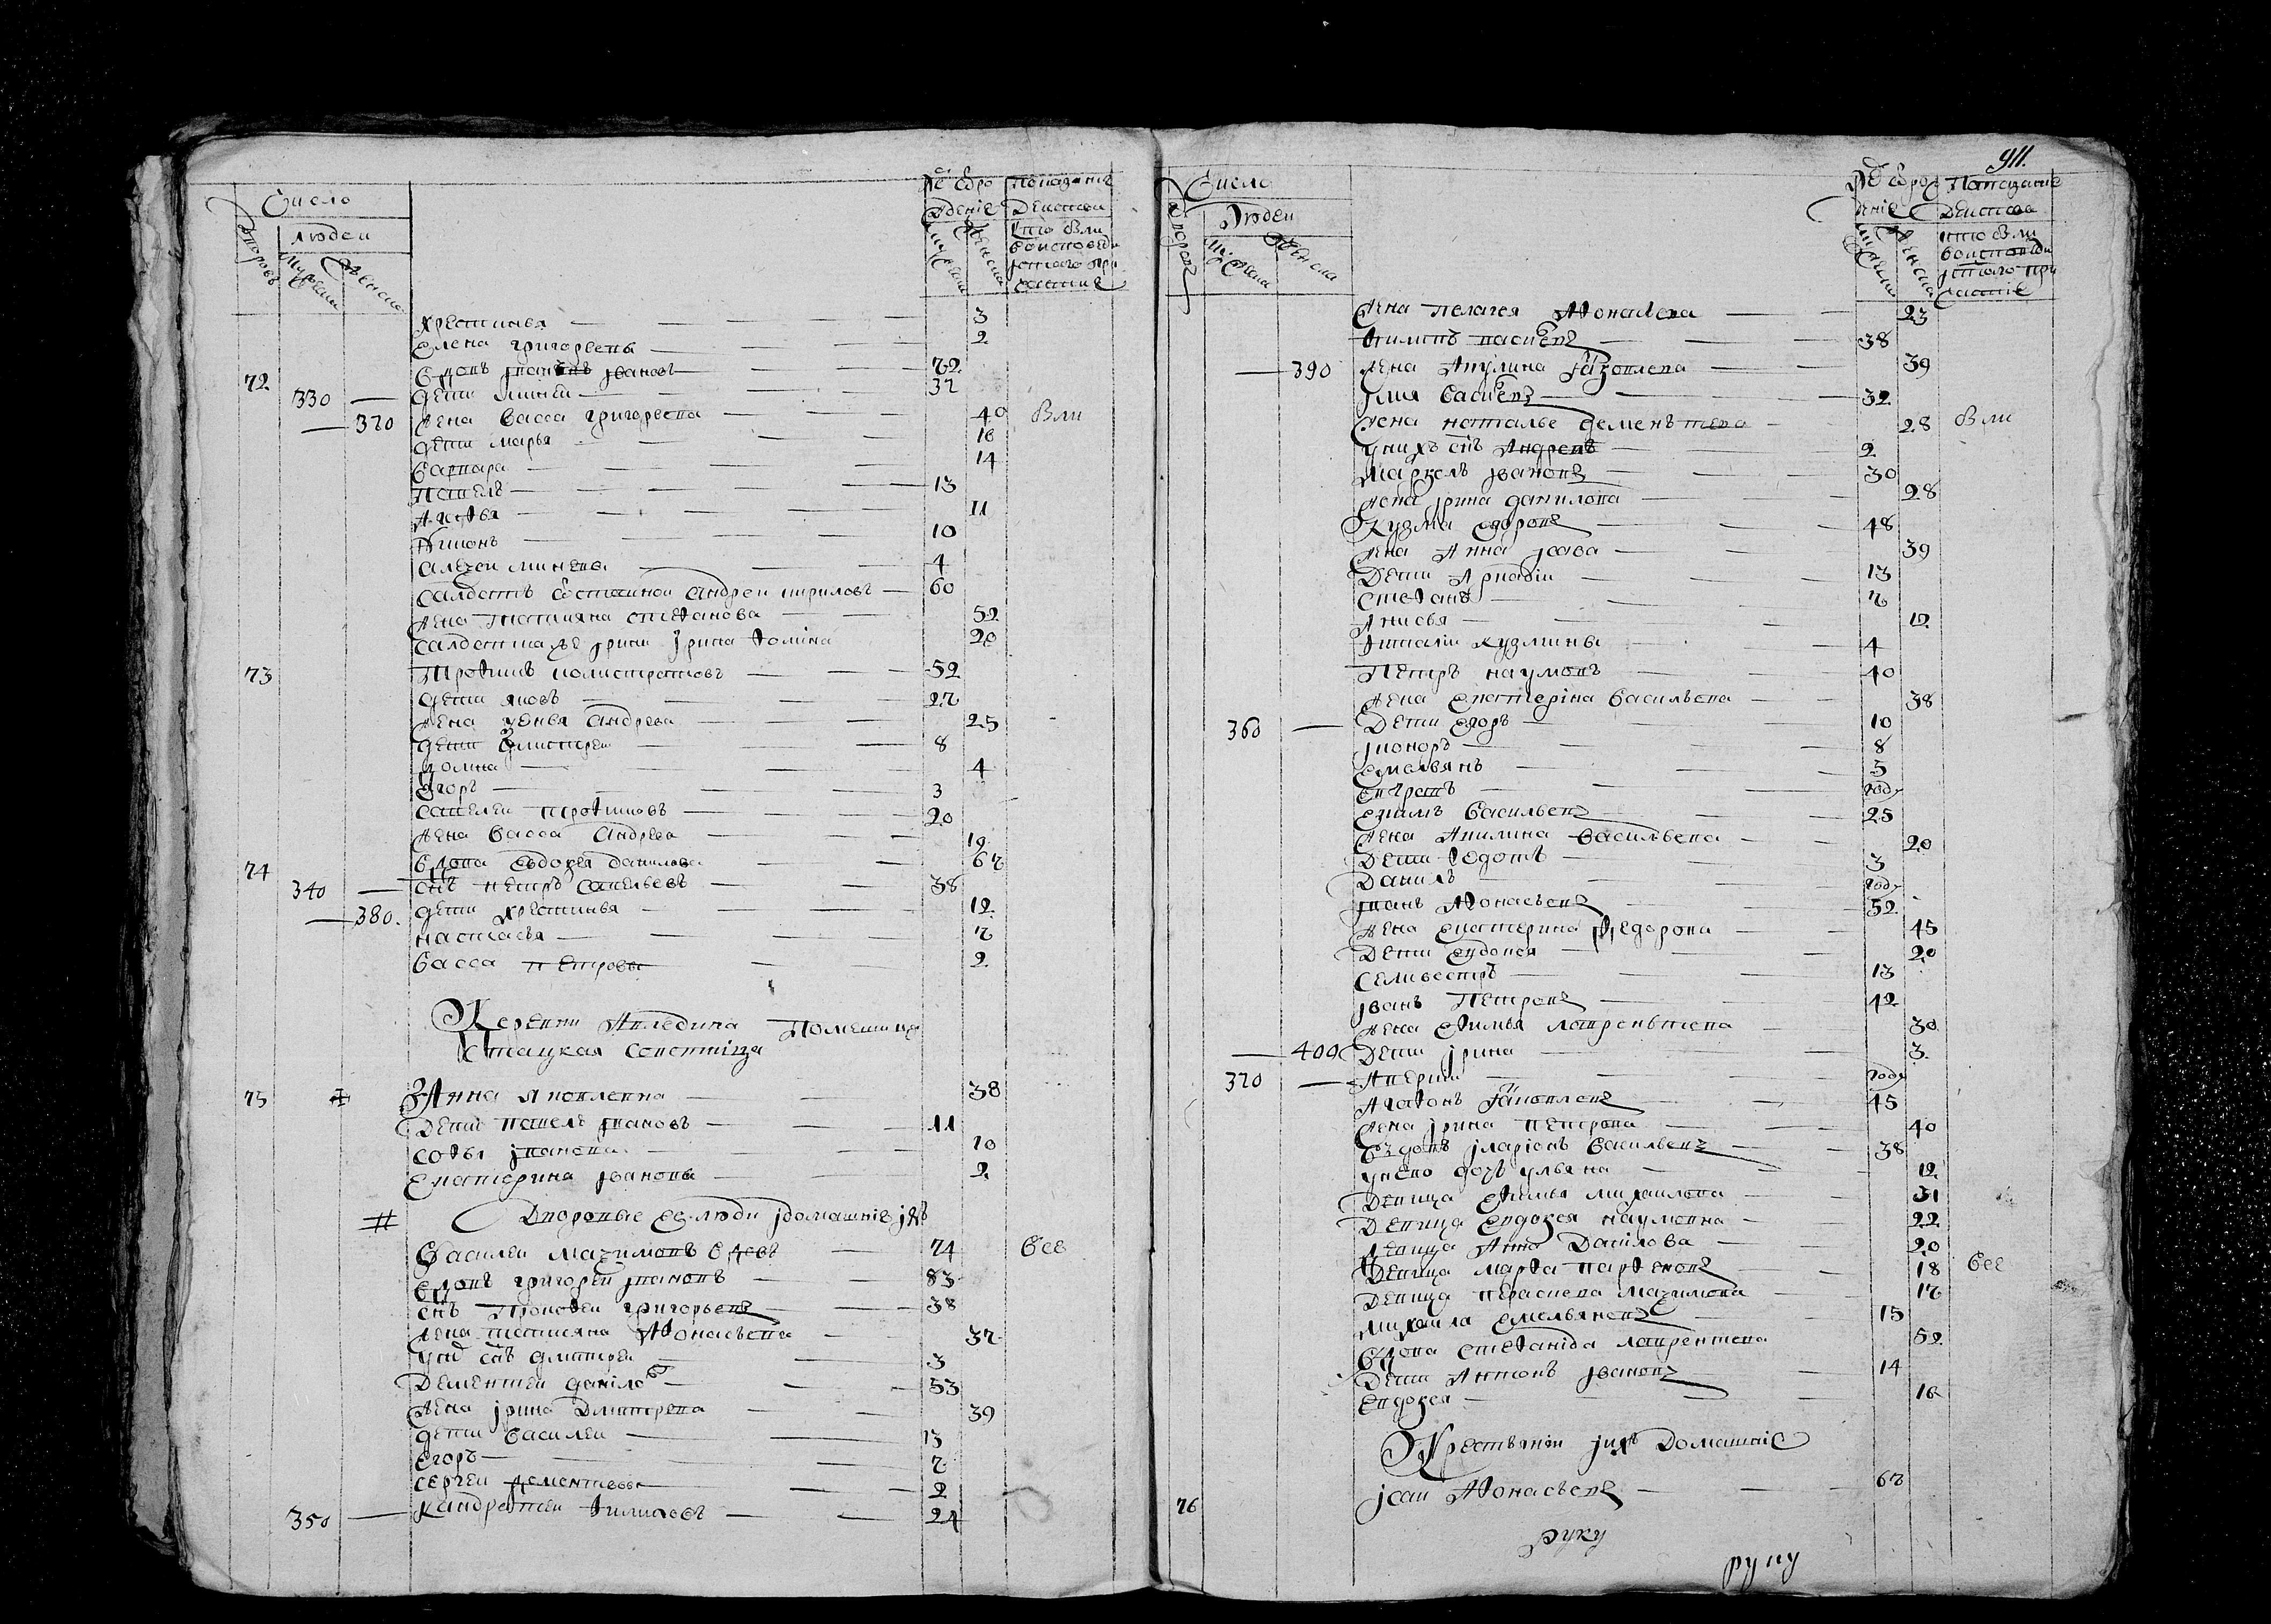 Число
Дворовъ
людеи
мужеска
женска
мужеска
женска
Показание
Действа
кто были
Хрестинья 3
Елена григорьевы 2
72 Вдовъ Иванъ Ивановъ 72
330 дети Миней 37
370 жена васса григорьева 40 Были
дети марья 16
варвара 14
Павелъ 13
Агафья 11
10
Алексеи минеевы 4
Салдатъ отставной Андреи кириловъ 60
жена татияна стефанова 52
20
73 Трофимъ калистратовъ 52
дети яковъ 27
жена ксенья Андреева 25
дети дмитреи 8
4
Егоръ 3
савелеи трофимовъ 20
жена васса Андреева 19
74 Вдова евдокея данилова 67
340 снъ петръ савельевъ 38
380. дети хрестинья 12
настасья 7
васса петровы 2
Помещица
Стацкая Советница
75 Анна Яковлевна 38
Дети павелъ ивановъ 11
софья иванова 10
Екатерина иванова 2
# Дворовые ее люди и домашние ихъ
Василеи махимовъ вдовъ 74 Все
вдовъ григореи ивановъ 83
снъ Прокофеи григорьевъ 38
жена татияна Афонасьева 37
у них снъ дмитреи 3
Дементеи данилов 53
жена ирина Дмитрева 39
дети василеи 13
Егоръ 7
сергеи дементьевы 2
350 Кандратеи филиповъ 24
911.
Число
Людеи
Показание
Действа
кто были
жена пелагея Афонасьева 23
Филипъ васильевъ 38
390 жена Акулина Яковлева 39
Илия васильевъ 32
жена наталье дементьева 28 были
у нихъ снъ Андреевъ 2
Маркелъ ивановъ 30
жена ирина данилова 28
Кузма Федоровъ 48
жена Анна 39
Дети Аркадии 13
Стефанъ 7
Анисья 12
Виталии кузмины 4
Петръ наумовъ 40
жена екатерина васильева 38
360 Дети егоръ 10
Никоноръ 8
емельянъ 5
году
ефимъ васильевъ 25
жена Акилина васильева 20
Дети Федотъ 3
Данилъ году
Иванъ Афонасьевъ 52
жена екатерина Федорова 45
Дети евдокея 20
селивестръ 13
Иванъ Петровъ 42
жена ефимья лаврентьева 30
400 Дети ирина 3
370 Аверкии году
Агафонъ Яковлевъ 45
жена ирина петрова 40
вдовъ иларионъ васильевъ 38
у нево дочь ульяна 12
Девица ефимья михаилова 31
Девица евдокея наумовна 22
Девица Анна Данилова 20
Девица марфа парфенова 18 Все
Девица праскева махимова 17
михаила емельяновъ 15
Вдова стефанида лаврентева 52
Дети Антонъ ивановъ 14
Евдокея 16
Крестьяни и ихъ домашние
76 Исаи Афонасьевъ 67
руку
руку